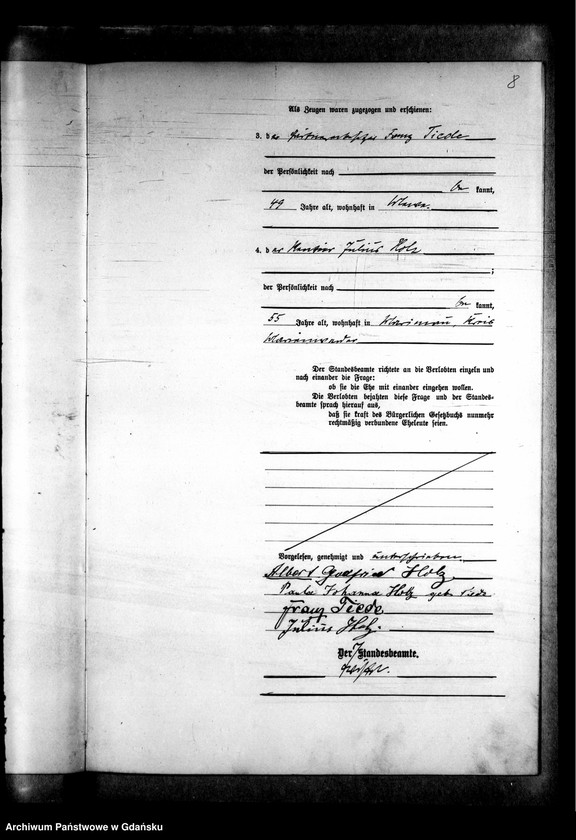 8
Als Zeugen waren zugezogen und erschienen:
3. der Franz Tiede
der Persönlichkeit nach
be kannt,
49 Jahre alt, wohnhaft in
4. der Rentier Julius Holz
;
der Persönlichkeit nach
be kannt,
55 Jahre alt, wohnhaft in Marienau, Kreis
Marienwerder
Der Standesbeamte richtete an die Verlobten einzeln und
nach einander die Frage:
ob sie die Ehe mit einander eingehen wollen.
Die Verlobten bejahten diese Frage und der Standes-
beamte sprach hierauf aus,
daß sie kraft des Bürgerlichen Gesetzbuchs nunmehr
rechtmäßig verbundene Eheleute seien.
Vorgelesen, genehmigt und unterschrieben
Albert Gottfried Holz
Paula Johanna Holz geb. Tiede
Franz Tiede
Julius Holz.
Der Standesbeamte.
Archiwum Państwowe w Gdańsku